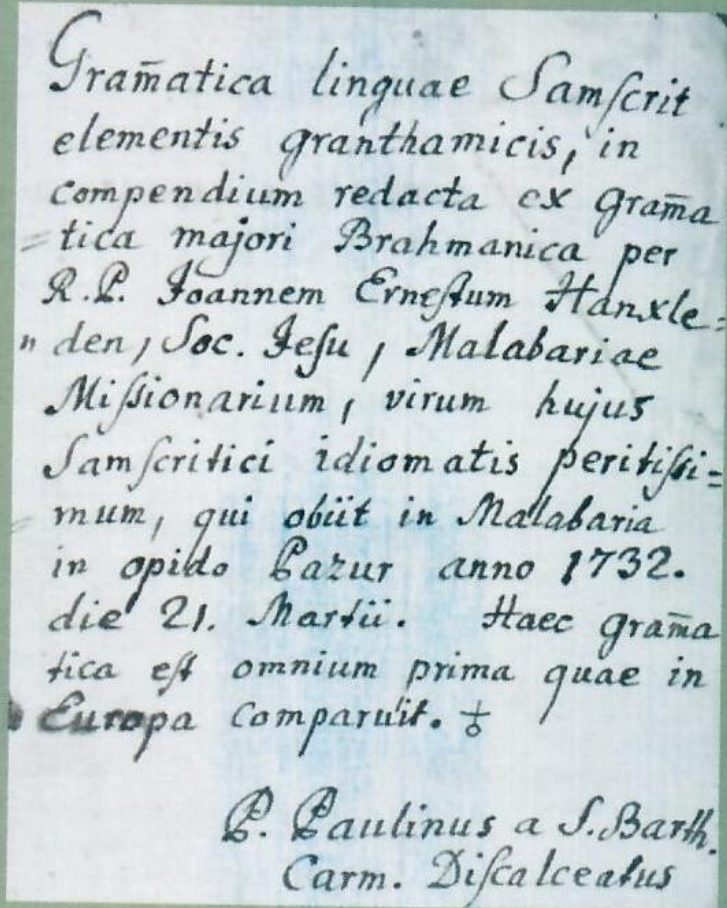 Gram̄atica linguae Samſcrit
elementis granthamicis, in
compendium redacta ex gram̄a
= tica majori Brahmanica per
R.P. Joannem Erneſtum Hanxle=
" den, Soc. Jeſu, Malabariae
Miſsionarium, virum hujus
Samſcritici idiomatis peritiſsi=
mum, qui obiit in Malabaria
in opido Pazur anno 1732.
die 21. Martii. Haec gram̄a
tica eſt omnium prima quae in
Europa comparuit.
P. Paulinus a S. Barth.
Carm. Diſcalceatus